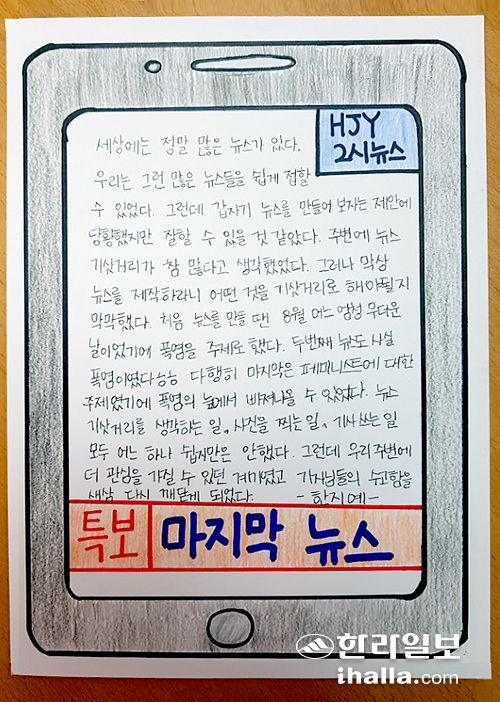 HJY
2시뉴스
세상에는 정말 많은 뉴스가 있다.
우리는 그런 많은 뉴스들을 쉽게 접할
수 있었다. 그런데 갑자기 뉴스를 만들어 보자는 제안에
당황했지만 잘할 수 있을 것 같았다. 주변에 뉴스
기삿거리가 참 많다고 생각했었다. 그러나 막상
뉴스를 제작하라니 어떤 것을 기삿거리로 해야될지
막막했다. 처음 뉴스를 만들 땐 8월 어느 엄청 무더운
날이었기에 폭염을 주제로 했다. 두번째 뉴스도 사실
폭염이였다ㅎㅎ 다행히 마지막은 페미니스트에 대한
주제였기에 폭염의 늪에서 빠져나올 수 있었다. 뉴스
기삿거리를 생각하는 일, 사진을 찍는 일, 기사 쓰는 일
모두 어느 하나 쉽지만은 안했다. 그런데 우리 주변에
더 관심을 가질 수 있던 계기였고 기자님들의 수고함을
새삼 다시 깨닫게 되었다. - 한지예 -
특보 마지막 뉴스
한라일보
ihalla.com